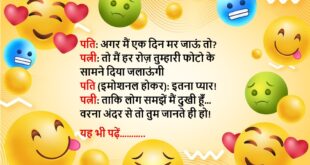 पति: अगर मैं एक दिन मर जाऊं तो?
पत्नी: तो मैं हर रोज़ तुम्हारी फोटो के
सामने दिया जलाऊंगी
पति (इमोशनल होकर): इतना प्यार!
पत्नी: ताकि लोग समझें मैं दुखी हूँ...
वरना अंदर से तो तुम जानते ही हो!
यह भी पढ़ें...........